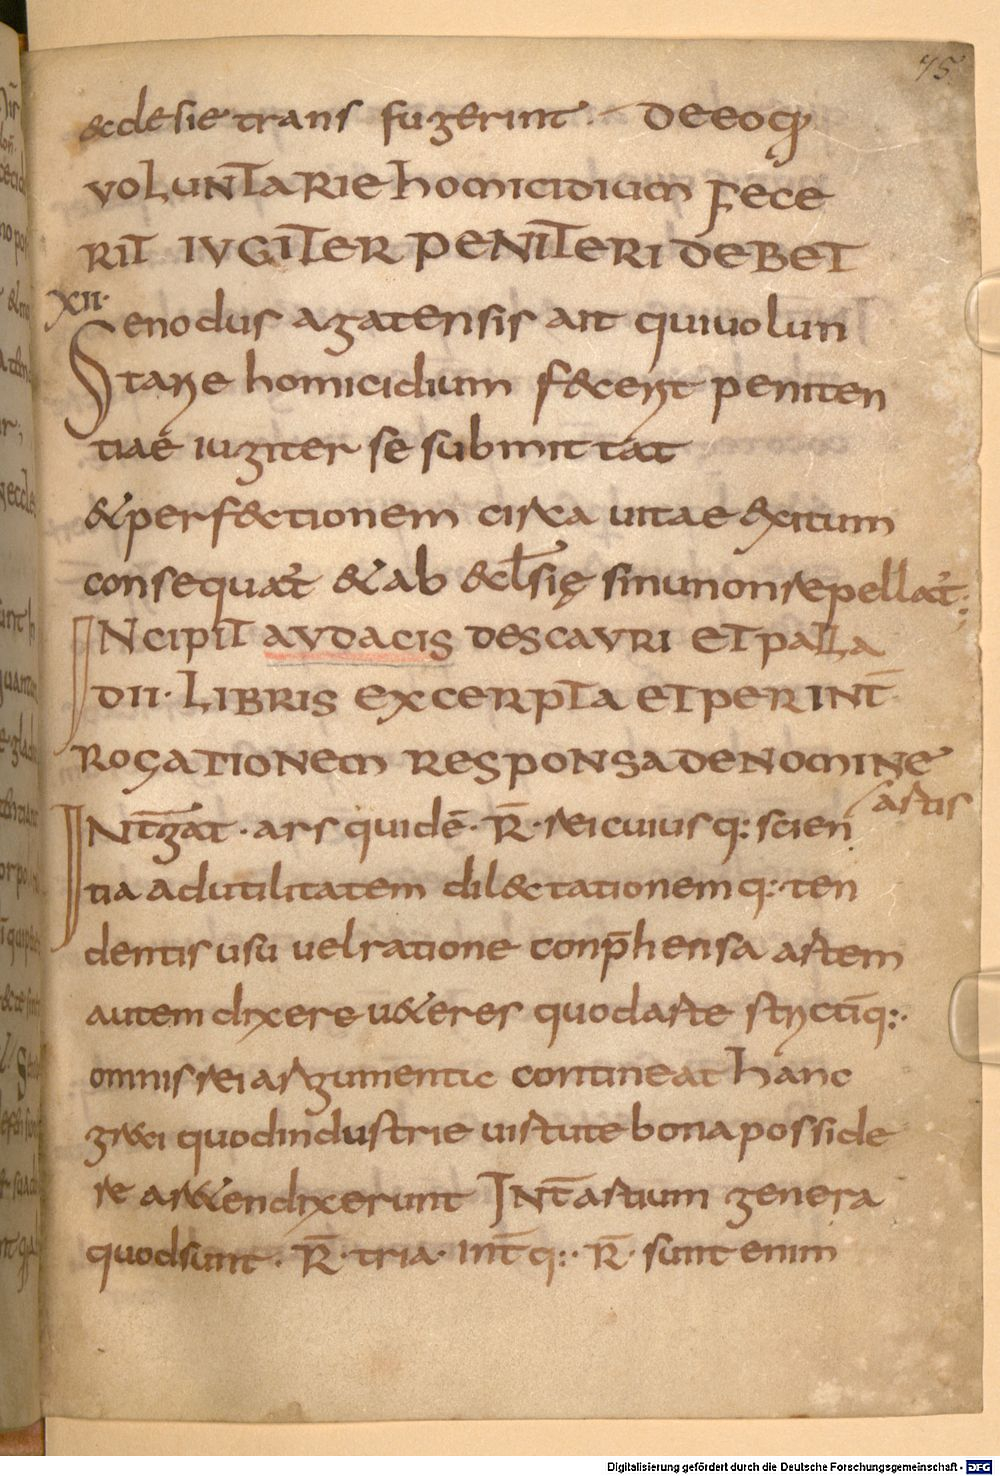 75
ecclesie trans fugerint. De eo q̄
VOLUNTARIE homicidium fece
RIT IUGITER PENITERI DEBET
XII.
Senodus agatensis ait qui uolun
tarie homicidium fecerit peniten
tiae iugiter se submittat
& perfectionem circa uitae exitum
consequat̾ & ab eccl̄się sinu non repellat̾;
INCIPIT AUDACIS DE SCAURI ET PALLA
DII. LIBRIS EXCERPTA ET PER INT̄
ROGATIONEM RESPONSA DE NOMINE
artis
INT̄gat. ars quid ē. R̄. rei cuiusq: scien
tia ad utilitatem dilectationemq: ten
dentis usu uel ratione conp̄hensa artem
autem dixere ueteres quod arte strictīq:.
omnis rei argumentic contineat hanc
greci quod industrie uirtute bona posside
re areten dixerunt INT̄ artium genera
quod sunt. R̄. tria. INT̄ q:. R̄. sunt enim
Digitalisierung gefördert durch die Deutsche Forschungsgemeinschaft - DFG